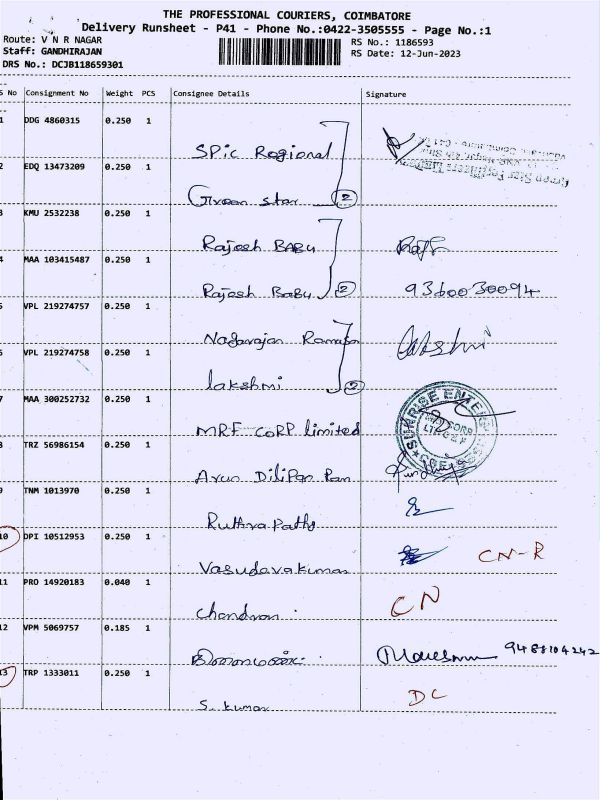 THE PROFESSIONAL COURIERS, COIMBATORE
Delivery Runsheet - P41 - Phone No.:0422-3505555 - Page No.:1
Route: V N R NAGAR
Staff: GANDHIRAJAN
DRS No.: DCJB118659301
RS No.: 1186593
RS Date: 12-Jun-2023
S No Consignment No Weight PCS Consignee Details Signature
1 DDG 4860315 0.250 1
SPic Regional
2 EDQ 13473209 0.250 1
Green star 2
3 KMU 2532238 0.250 1
Rajesh BABU
4 MAA 103415487 0.250 1
Rajesh BaBu 2 9360030094
5 VPL 219274757 0.250 1
Nagarajan
6 VPL 219274758 0.250 1
lakshmi 2 Lakshmi
7 MAA 300252732 0.250 1
MRF CORP limited
SUNRISE ENTERPRISES
MRF CORP
LTD C&F
8 TRZ 56986154 0.250 1
Arun Dilipan
9 TNM 1013970 0.250 1
Ruthra Pathy
10 DPI 10512953 0.250 1
Vasudevakumar CN-R
11 PRO 14920183 0.040 1
Chandran CN
12 VPM 5069757 0.185 1
9488104242
13 TRP 1333011 0.250 1
S. kumar DC